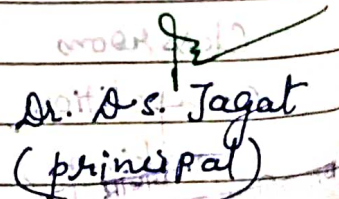 Dr. D s. Jagat
(principal)